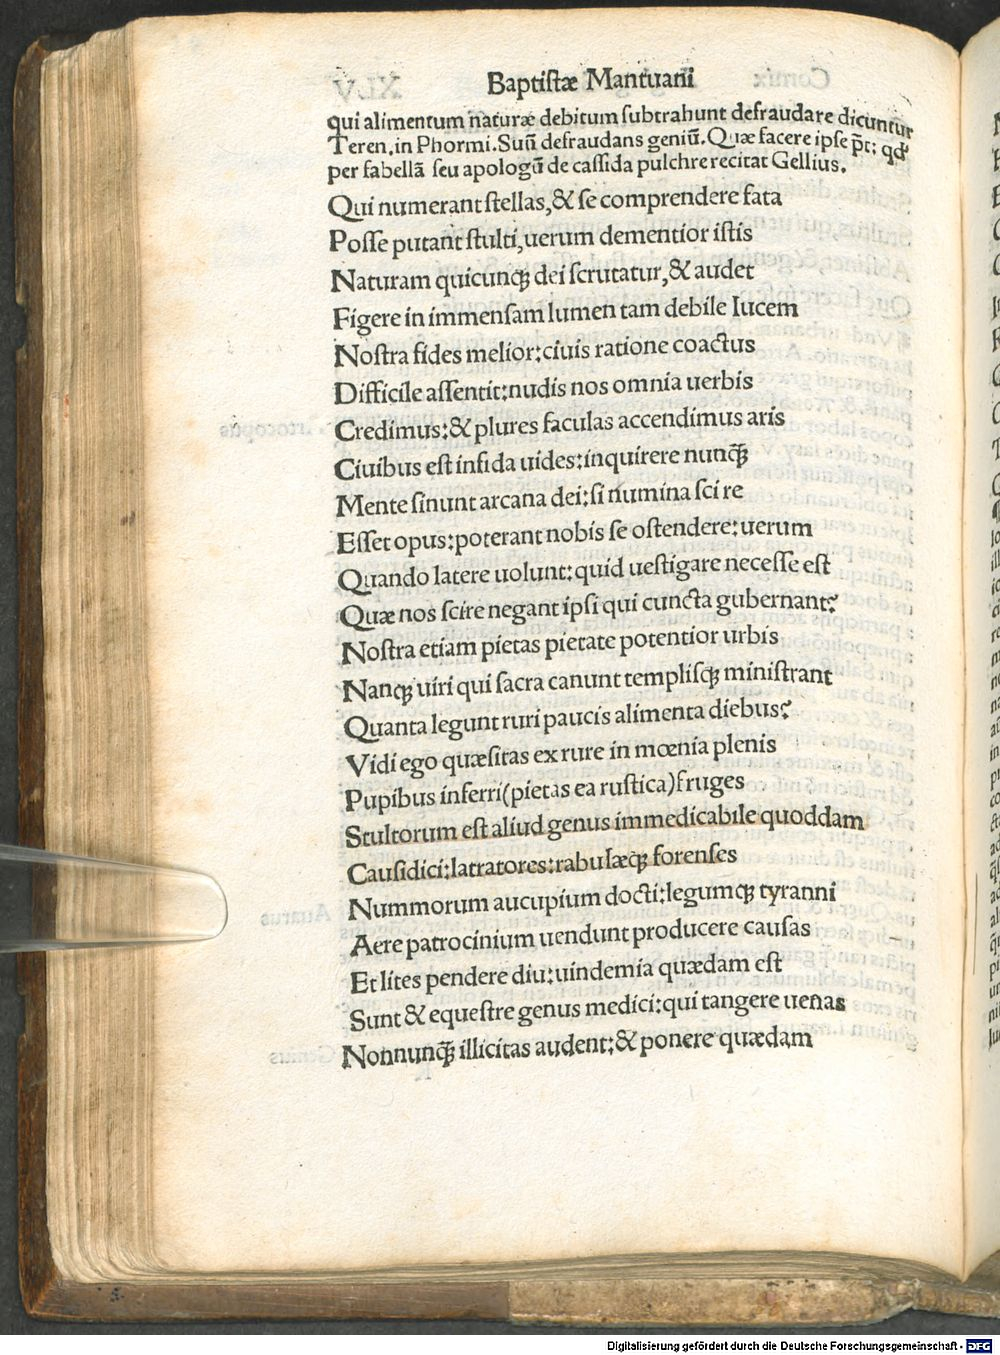 Baptistæ Mantuani
qui alimentum naturæ debitum subtrahunt defraudare dicuntur
Teren. in Phormi. Suū defraudans geniū. Quæ facere ipse p̄t: qđ
per fabellā seu apologū de cassida pulchre recitat Gellius.
Qui numerant stellas, & se comprendere fata
Posse putant stulti, uerum dementior istis
Naturam quicunqꝫ dei scrutatur, & audet
Figere in immensam lumen tam debile lucem
Nostra fides melior: ciuis ratione coactus
Difficile assentit: nudis nos omnia uerbis
Credimus: & plures faculas accendimus aris
Ciuibus est infida uides: inquirere nunqꝫ̄
Mente sinunt arcana dei: si numina scire
Esset opus: poterant nobis se ostendere: uerum
Quando latere uolunt: quid uestigare necesse est
Quæ nos scire negant ipsi qui cuncta gubernant?
Nostra etiam pietas pietate potentior urbis
Nanqꝫ uiri qui sacra canunt templisqꝫ ministrant
Quanta legunt ruri paucis alimenta diebus?
Vidi ego quæsitas ex rure in mœnia plenis
Pupibus inferri (pietas ea rustica) fruges
Stultorum est aliud genus immedicabile quoddam
Causidici: latratores: rabulæqꝫ forenses
Nummorum aucupium docti: legumqꝫ tyranni
Aere patrocinium uendunt producere causas
Et lites pendere diu: uindemia quædam est
Sunt & equestre genus medici: qui tangere uenas
Nonnunqꝫ̄ illicitas audent: & ponere quædam
Digitalisierung gefördert durch die Deutsche Forschungsgemeinschaft - DFG